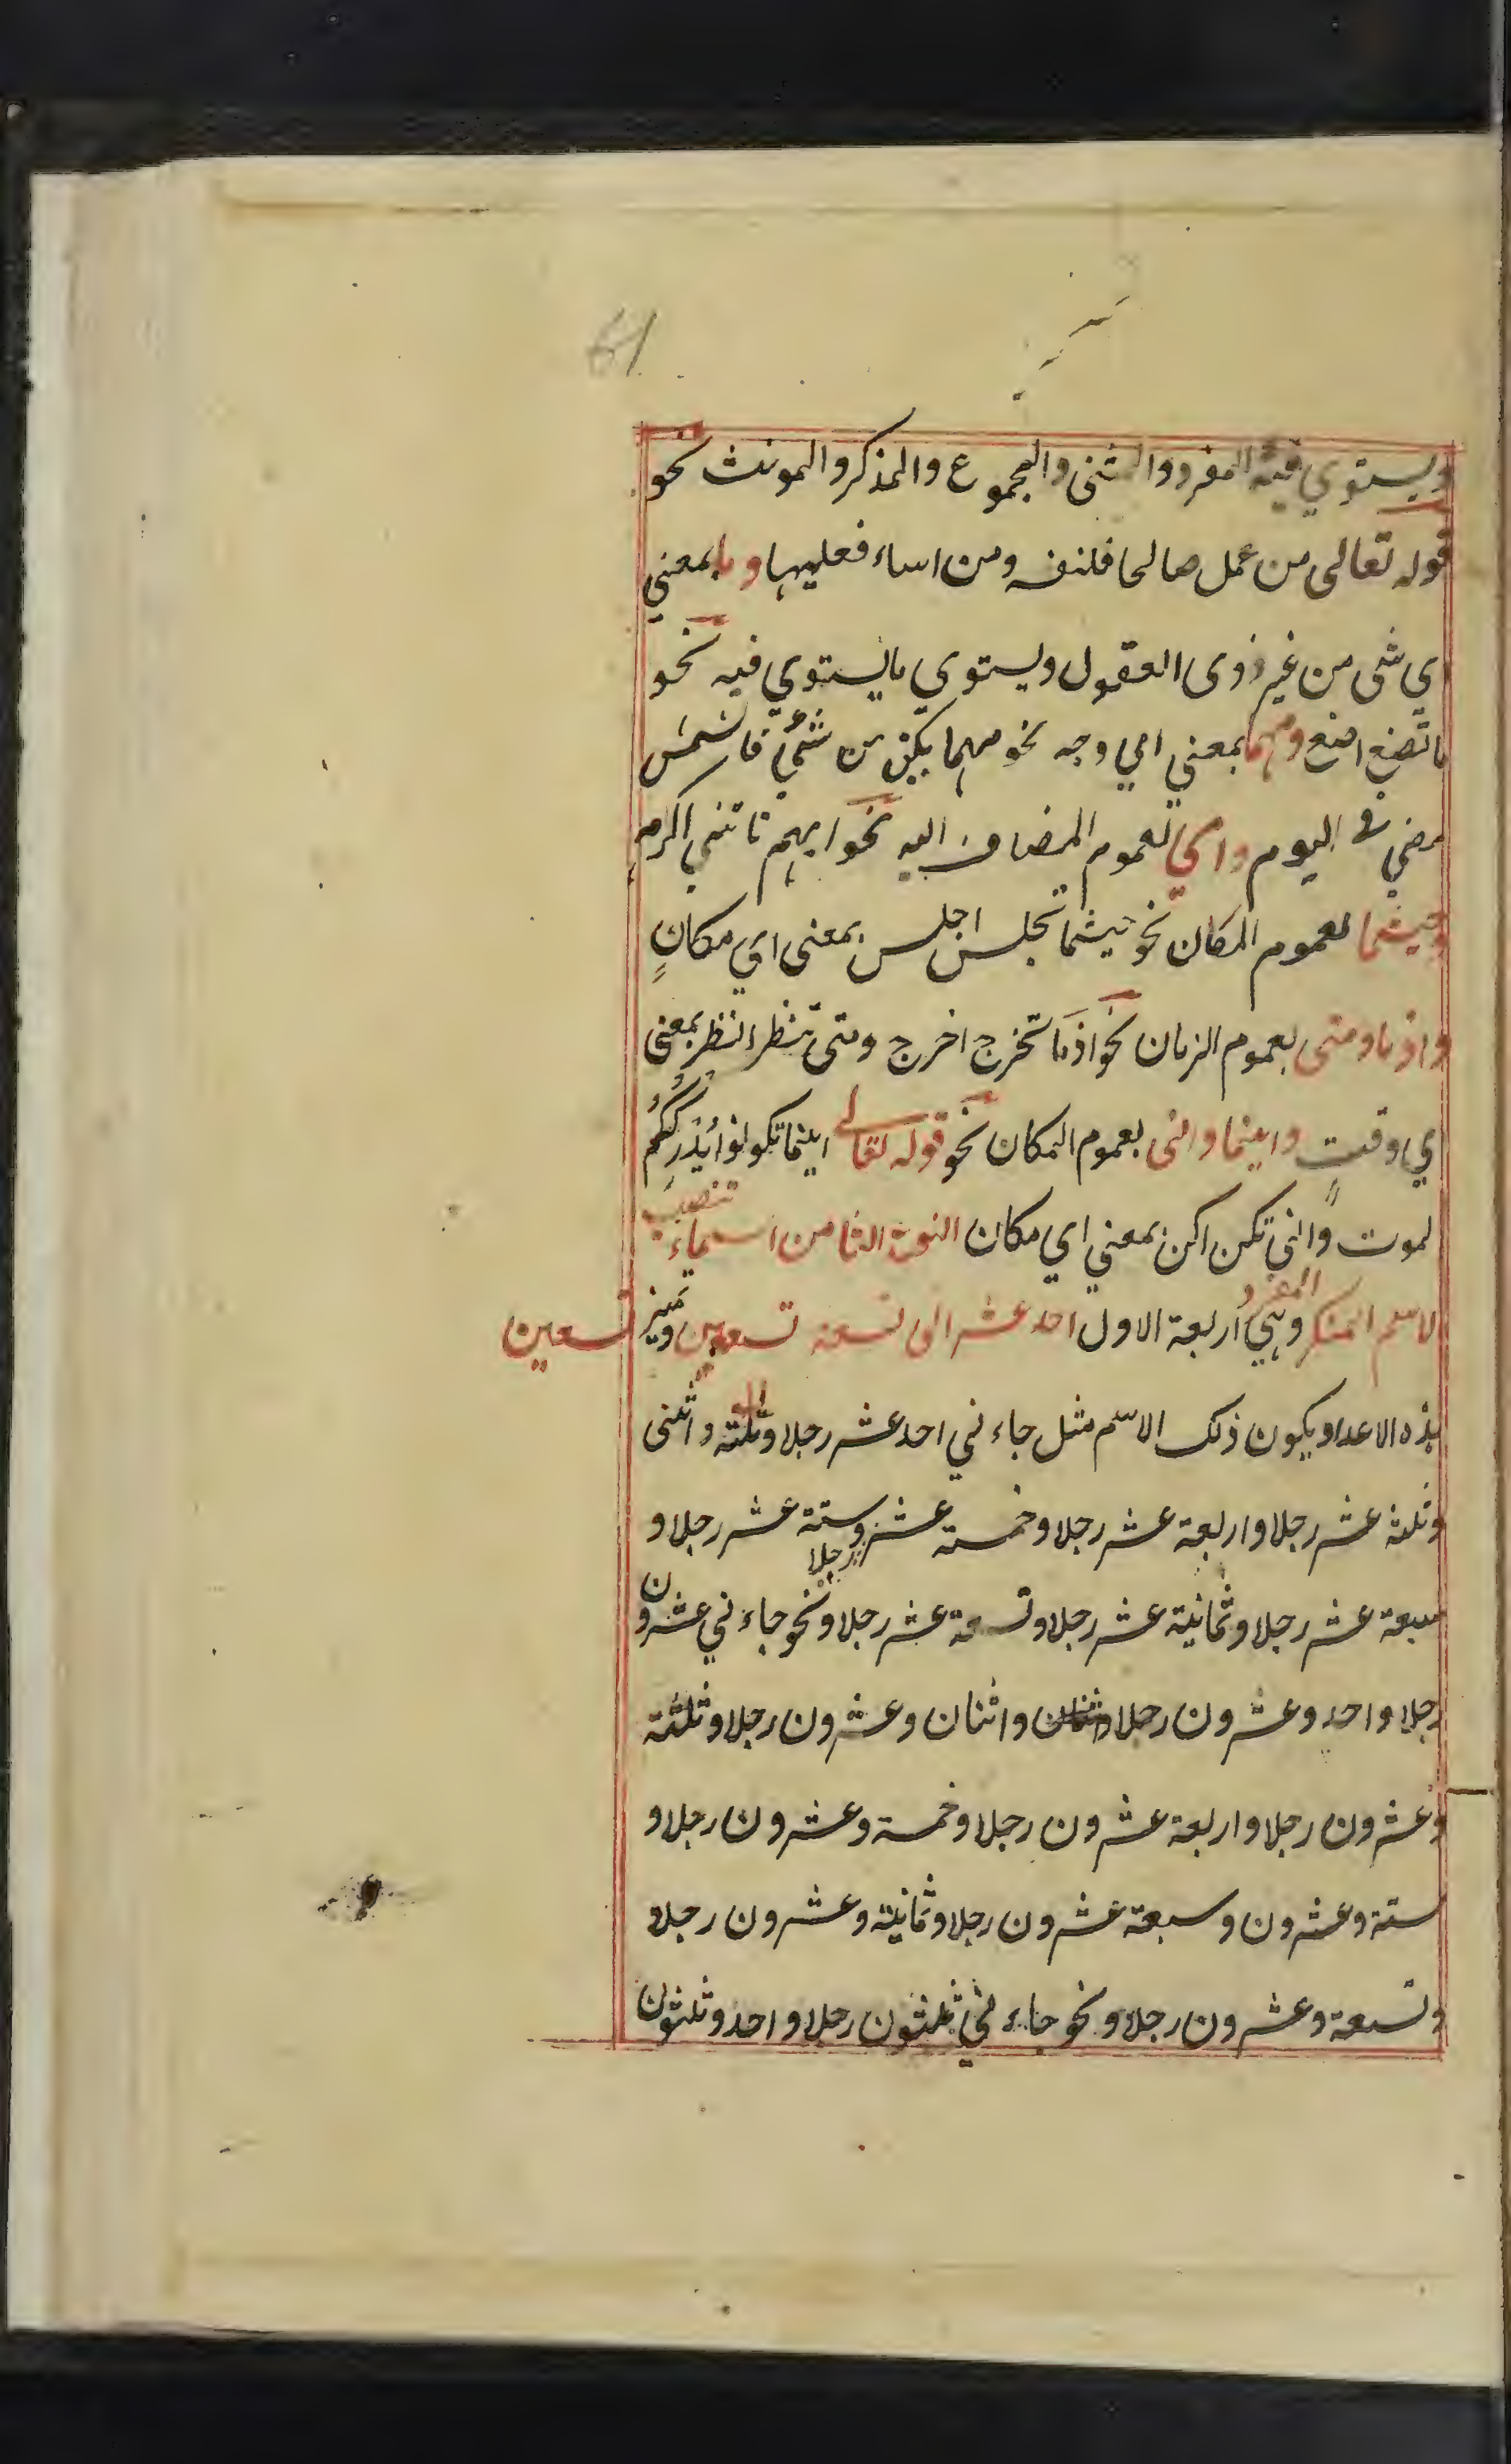 61
ويستوي فيه المفرد والمثنى والمجموع والمذكر والمونث نحو
قوله تعالى من عمل صالحا فلنفسه ومن اساء فعليها وما بمعني
اي شى من غير ذوى العقول ويستوي ما يستوي فيه نحو
ما تصنع اصنع ومهما بمعني اي وجه نحو مهما يكن من شئ فالشمس
مضي في اليوم واي لعموم المضاف اليه نحو ايهم تاتنى اكرم
وحيثما لعموم المكان نحو حيثما تجلس اجلس بمعنى اي مكانٍ
واذ ما ومتى لعموم الزمان نحو اذ ما تخرج اخرج ومتى تنظر انظر بمعنى
اي وقتٍ واينما وانى لعموم المكان نحو قوله تعالى اينما تكونوا يُدْرِكْكُم
لموت وانى تكن اكن بمعني اي مكان النوع الثامن اسماء تنصب
الاسم المنكر المفرد وهي اربعة الاول احد عشر الى تسعة تسعين ومميز تسعين
هذه الاعداد يكون ذلك الاسم مثل جاءني احد عشر رجلا وثلثة واثنى
وثلثة عشر رجلا واربعة عشر رجلا وخمسة عشر رجلا وستة عشر رجلا و
سبعة عشر رجلا وثمانية عشر رجلا وتسعة عشر رجلا ونحو جاءني عشرون
رجلا واحد وعشرون رجلا واثنان واثنان وعشرون رجلا وثلثة
وعشرون رجلا واربعة عشرون رجلا وخمسة وعشرون رجلا و
ستة وعشرون وسبعة عشرون رجلا وثمانية وعشرون رجلا و
وتسعة وعشرون رجلا ونحو جاءني ثلثون رجلا واحد وثلثون